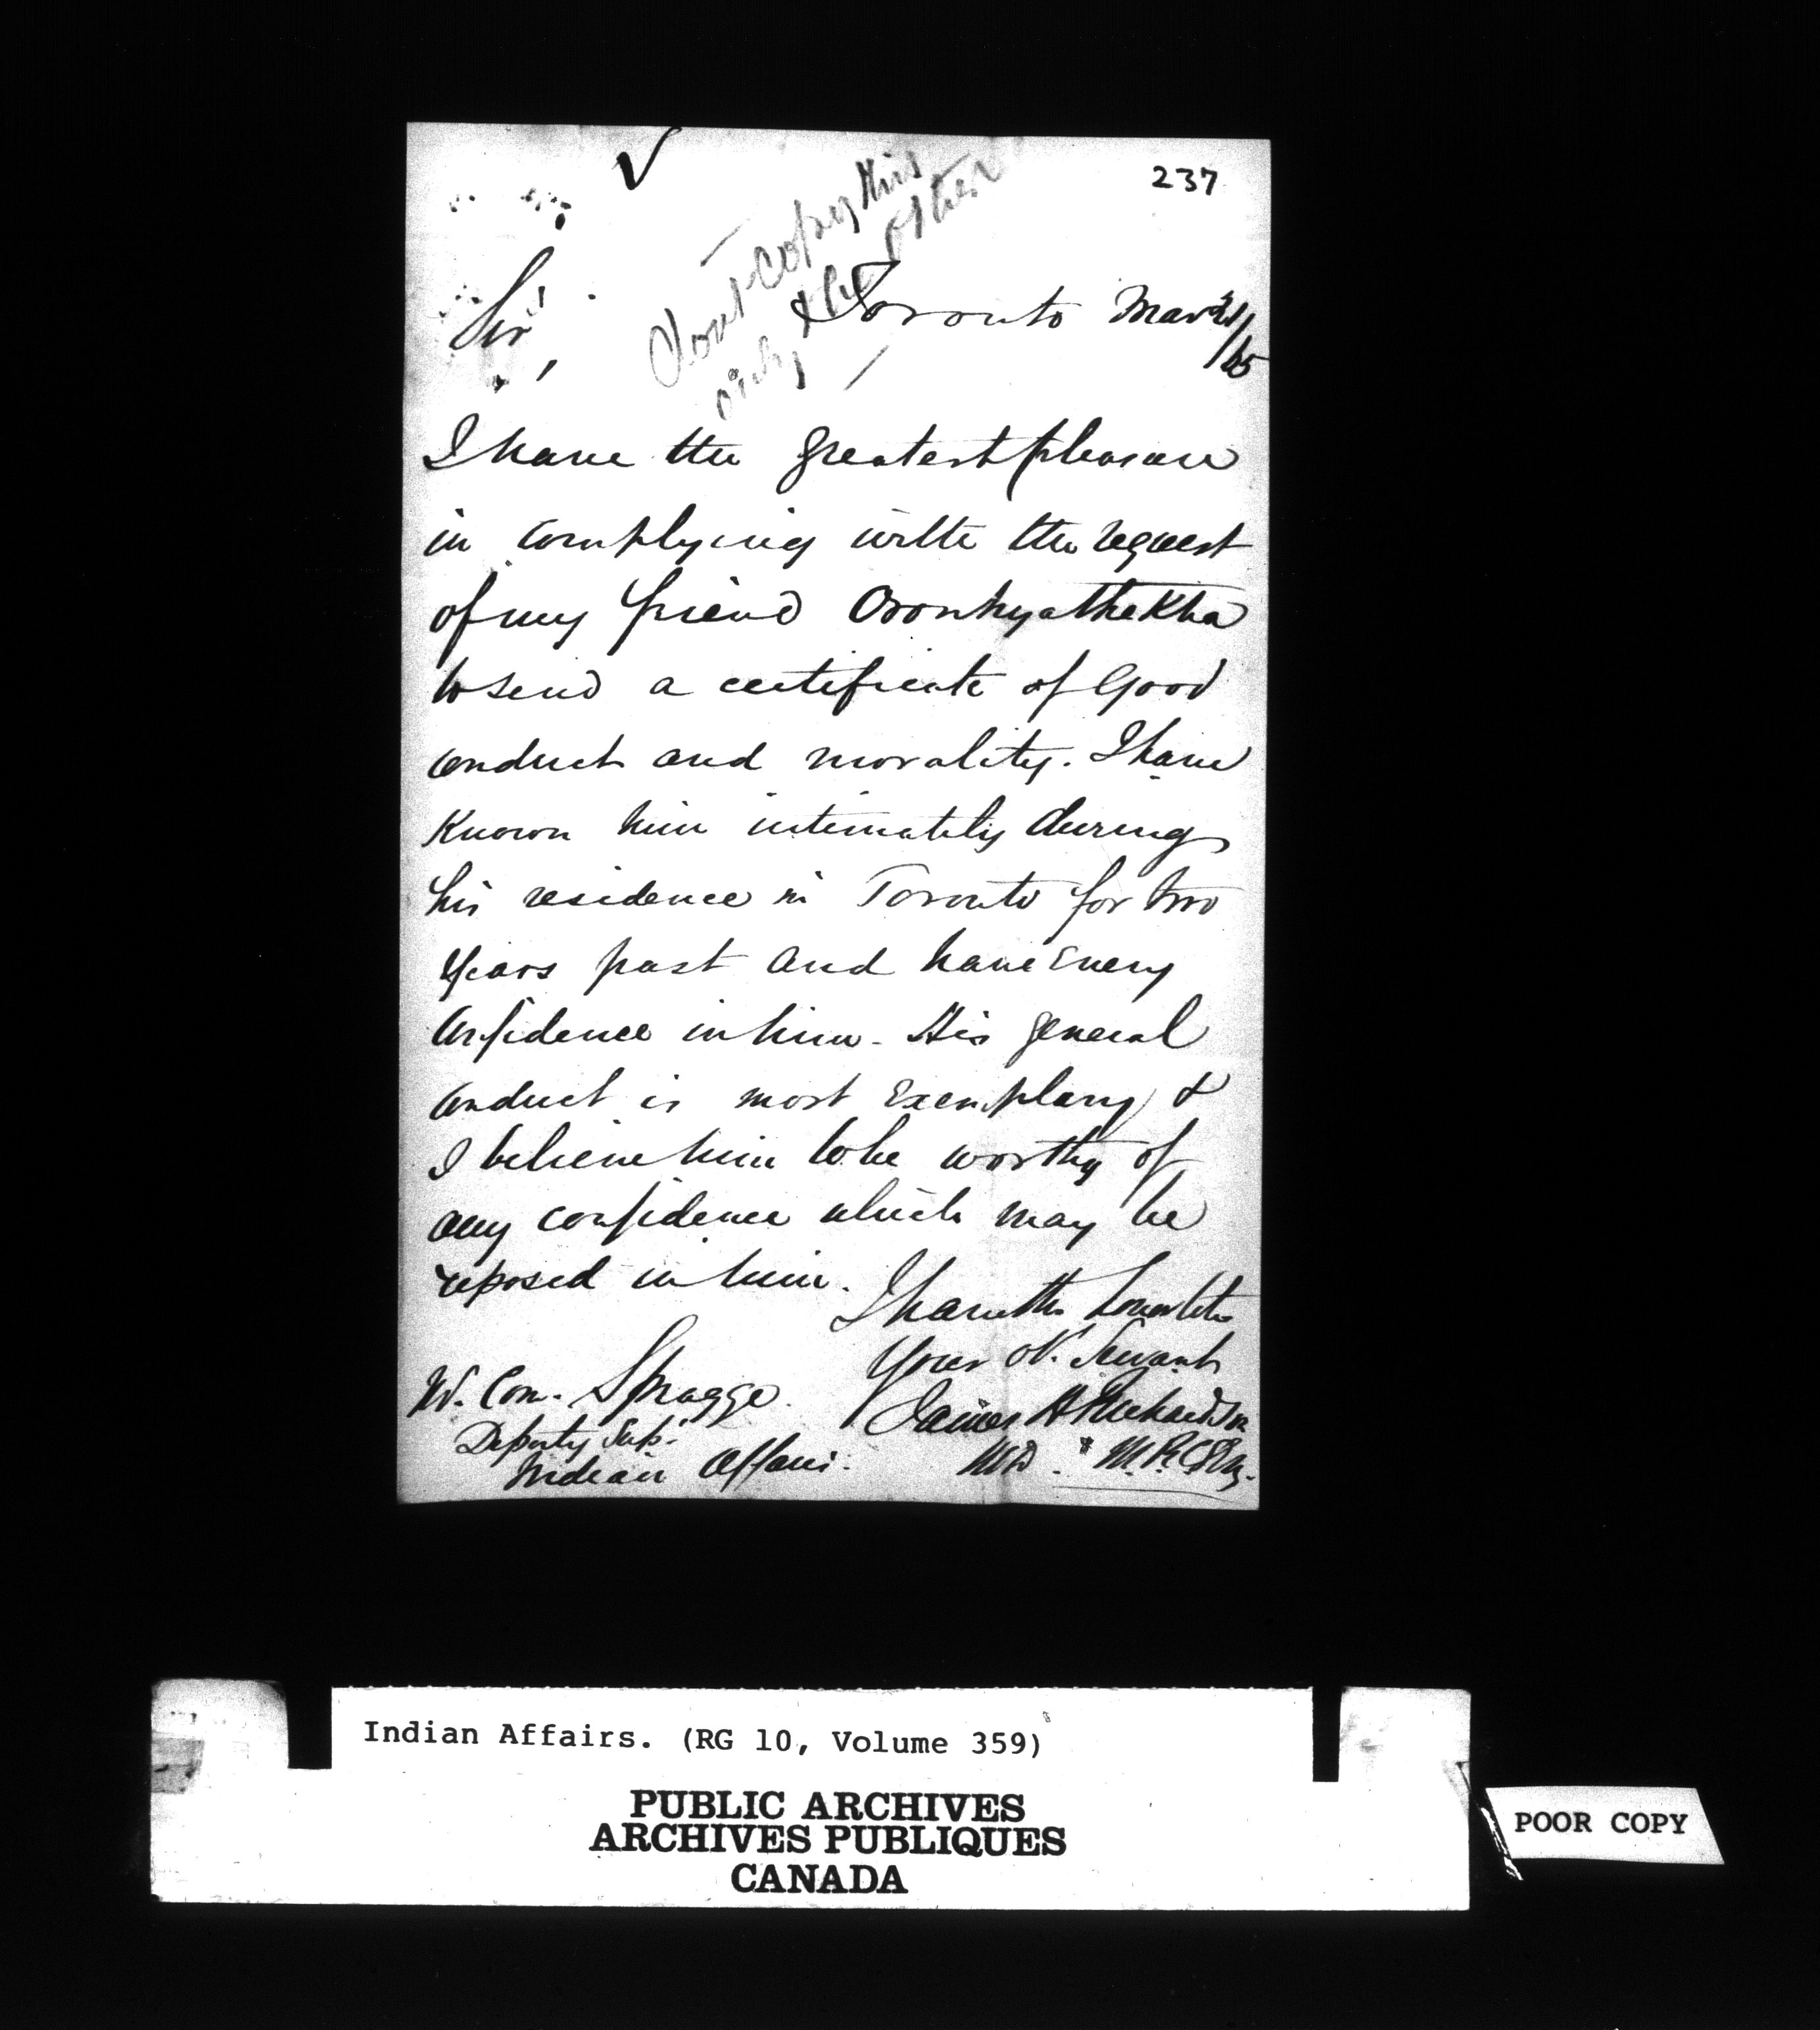 237
Dont copy this
only the other
Sir,
Toronto Mar 21/65
I have the greatest pleasure
in complying with the request
of my friend Oronhyathekha
to send a certificate of Good
conduct and morality. I have
Known him intimately during
his residence in Toronto for two
years past and have Every
confidence in him. His general
conduct is most Exemplary &
I believe him to be worthy of
any confidence which may be
reposed in him.
I have the honor to be
Your ob. Servant
James H Richardson
MD. M.R.C.S. Eng.
W. Com. Spragge
Deputy Sup.
Indian Affairs.
Indian Affairs. (RG 10, Volume 359)
PUBLIC ARCHIVES
ARCHIVES PUBLIQUES
CANADA
POOR COPY